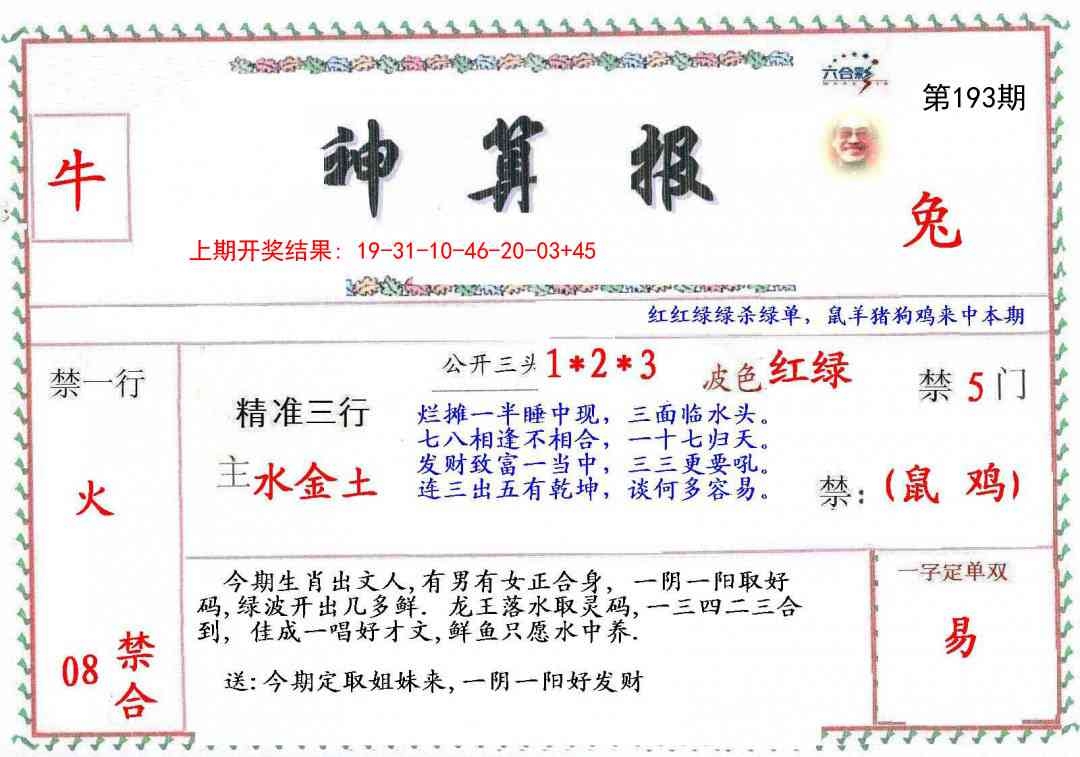 六合彩
第193期
牛
神算报
兔
上期开奖结果: 19-31-10-46-20-03+45
红红绿绿杀绿单, 鼠羊猪狗鸡来中本期
禁一行
公开三头 1*2*3
波色 红绿
禁 5 门
精准三行
烂摊一半睡中现, 三面临水头。
七八相逢不相合, 一十七归天。
发财致富一当中, 三三更要吼。
连三出五有乾坤, 谈何多容易。
主 水金土
火
禁: (鼠 鸡)
今期生肖出文人, 有男有女正合身, 一阴一阳取好
码, 绿波开出几多鲜. 龙王落水取灵码, 一三四二三合
到, 佳成一唱好才文, 鲜鱼只愿水中养.
送: 今期定取姐妹来, 一阴一阳好发财
一字定单双
易
08 禁合